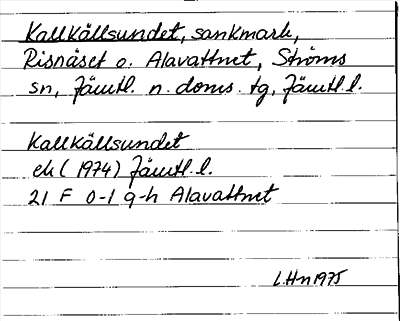 Kallkällsundet, sankmark,
Risnäset o. Alavattnet, Ströms
sn, Jämtl. n. doms. tg, Jämtl.l.
Kallkällsundet
ek (1974) Jämtl.l.
21 F 0-1 g-h Alavattnet
L.Hn 1975